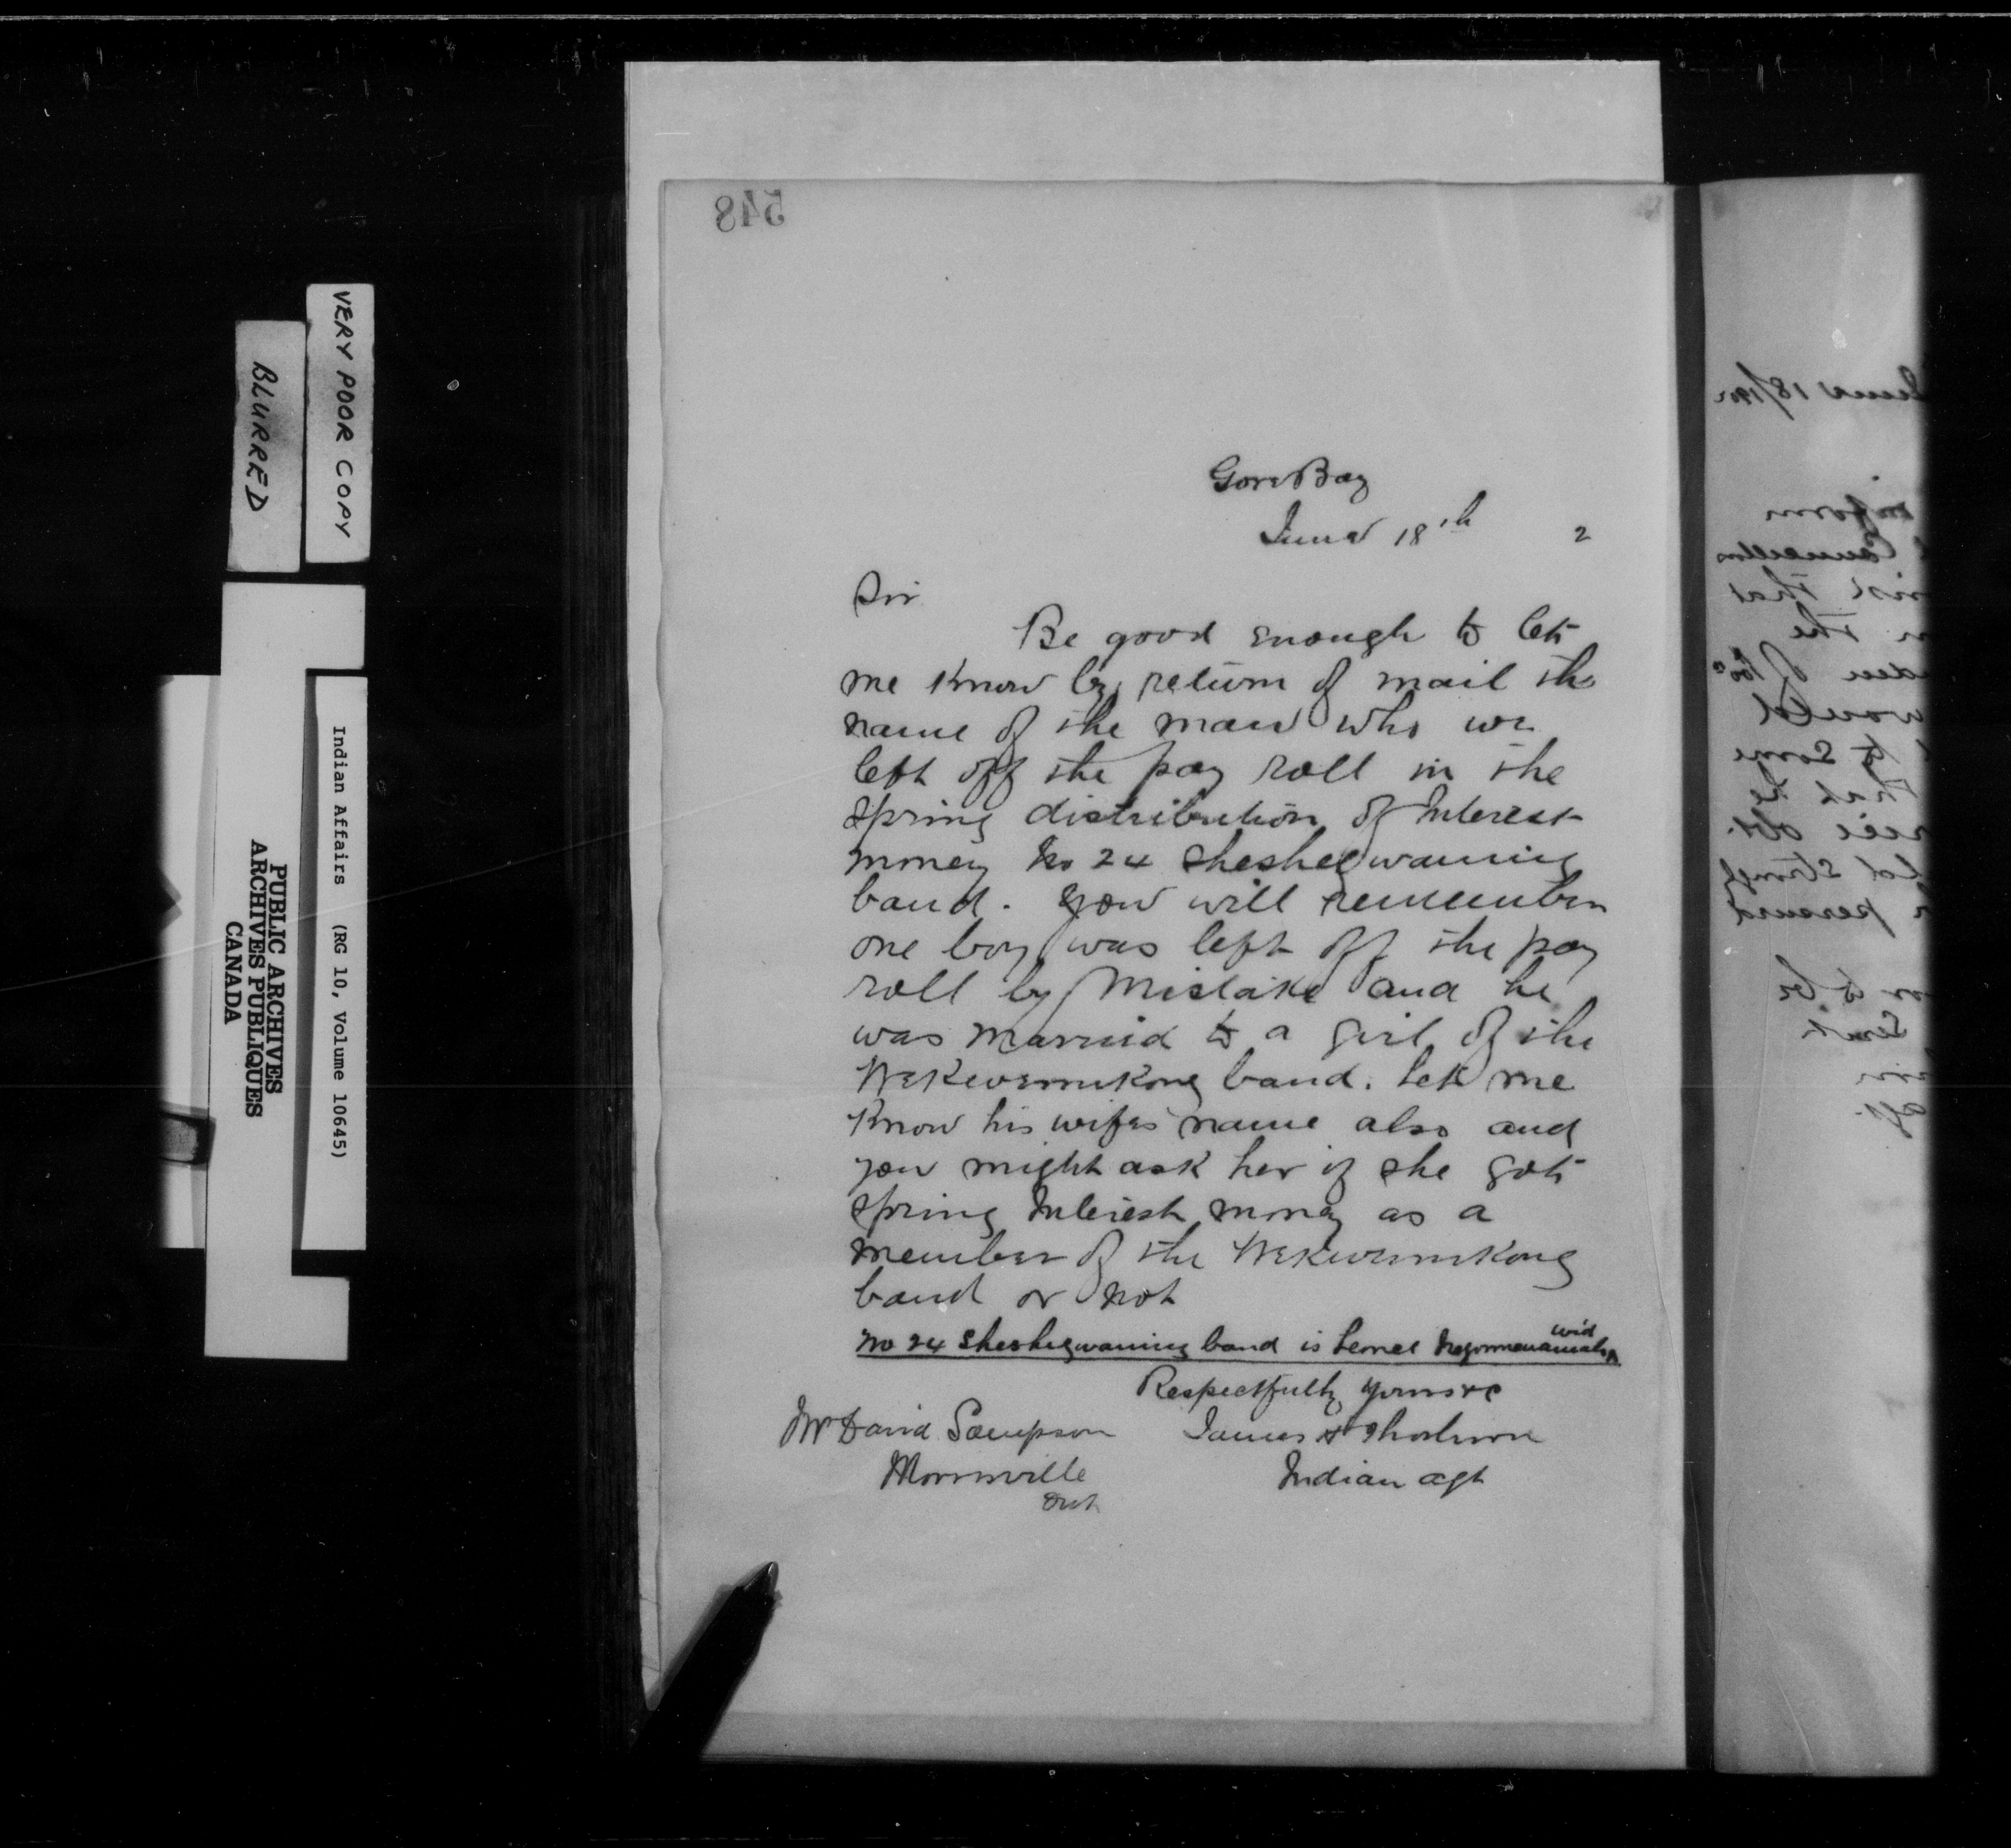 548
Gore Bay
June 18th 2
Sir
Be good enough to let
me know by return of mail the
name of the man who we
left off the pay roll in the
spring distribution of Interest
money No 24 Sheshegwaning
band. you will remember
one boy was left off the pay
roll by Mistake and he
was married to a girl of the
Wekwemikong band. Let me
Know his wifes name also and
you might ask her if she got
spring Interest money as a
member of the Wekwemikong
band or not
wid
No 24 Sheshegwaning band is
Respectfully yours &c
Mr David Sampson James H Thorburn
Indian agt
Ont
VERY POOR COPY
BLURRED
Indian Affairs (RG 10, Volume 10645)
PUBLIC ARCHIVES
ARCHIVES PUBLIQUES
CANADA
June 18/
inform
Councillors
that
the
of
would
to some
that he
to be
Sent